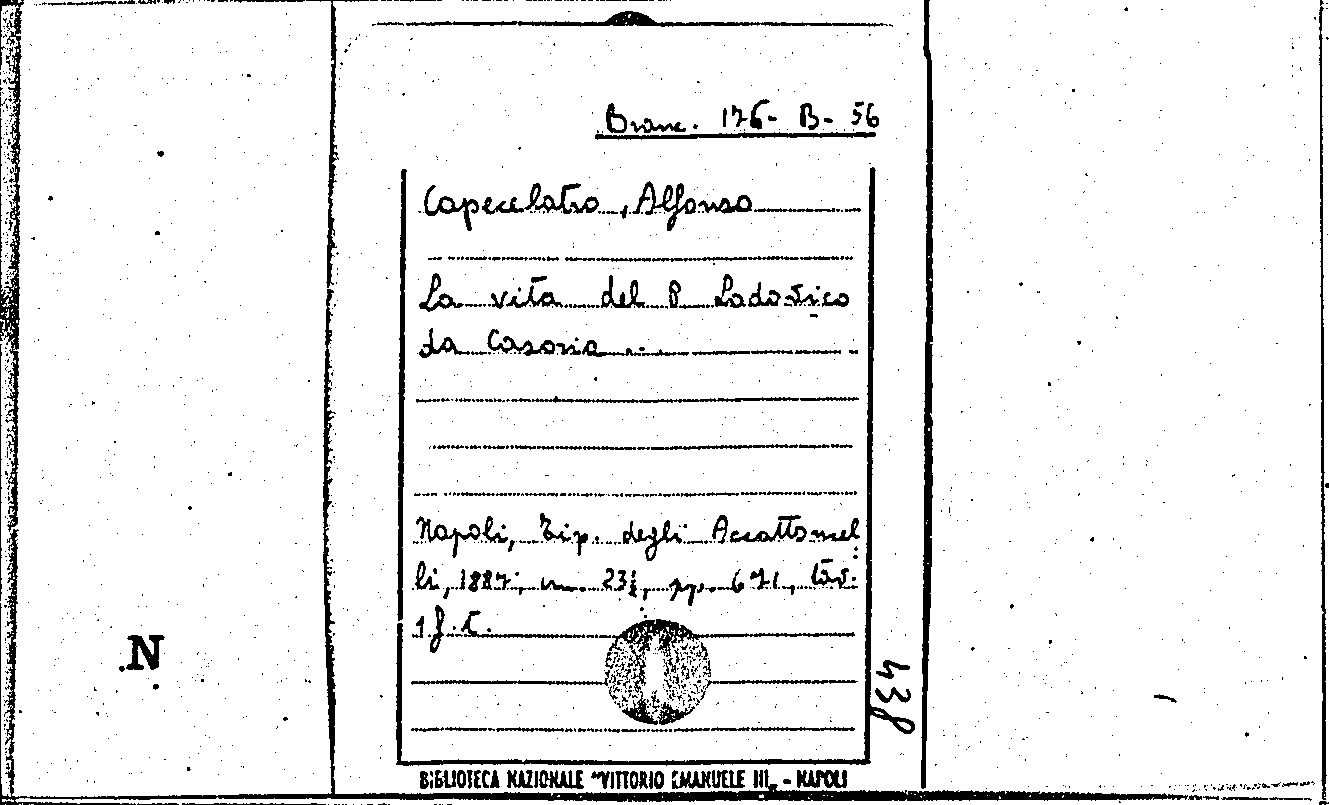 Branc. 176- B- 56
Capecelatro, Alfonso
La vita del P Lodovico
da Casoria ...
Napoli, Tip. degli Accattoncel
li, 1887, cm. 23½, pp. 671, tav.
1 f.t.
438
N
BIBLIOTECA NAZIONALE "VITTORIO EMANUELE III„ - NAPOLI